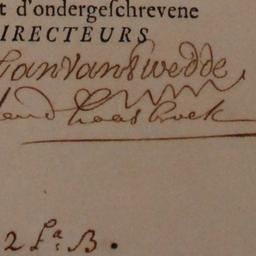 t d'ondergeſchrevene
IRECTEURS
van
Haasbroek
2 Lᵃ: B.